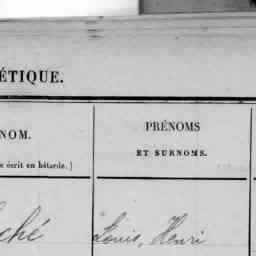 ÉTIQUE.
NOM. PRÉNOMS
e écrit en bâtarde.) ET SURNOMS.
ché Louis, Henri